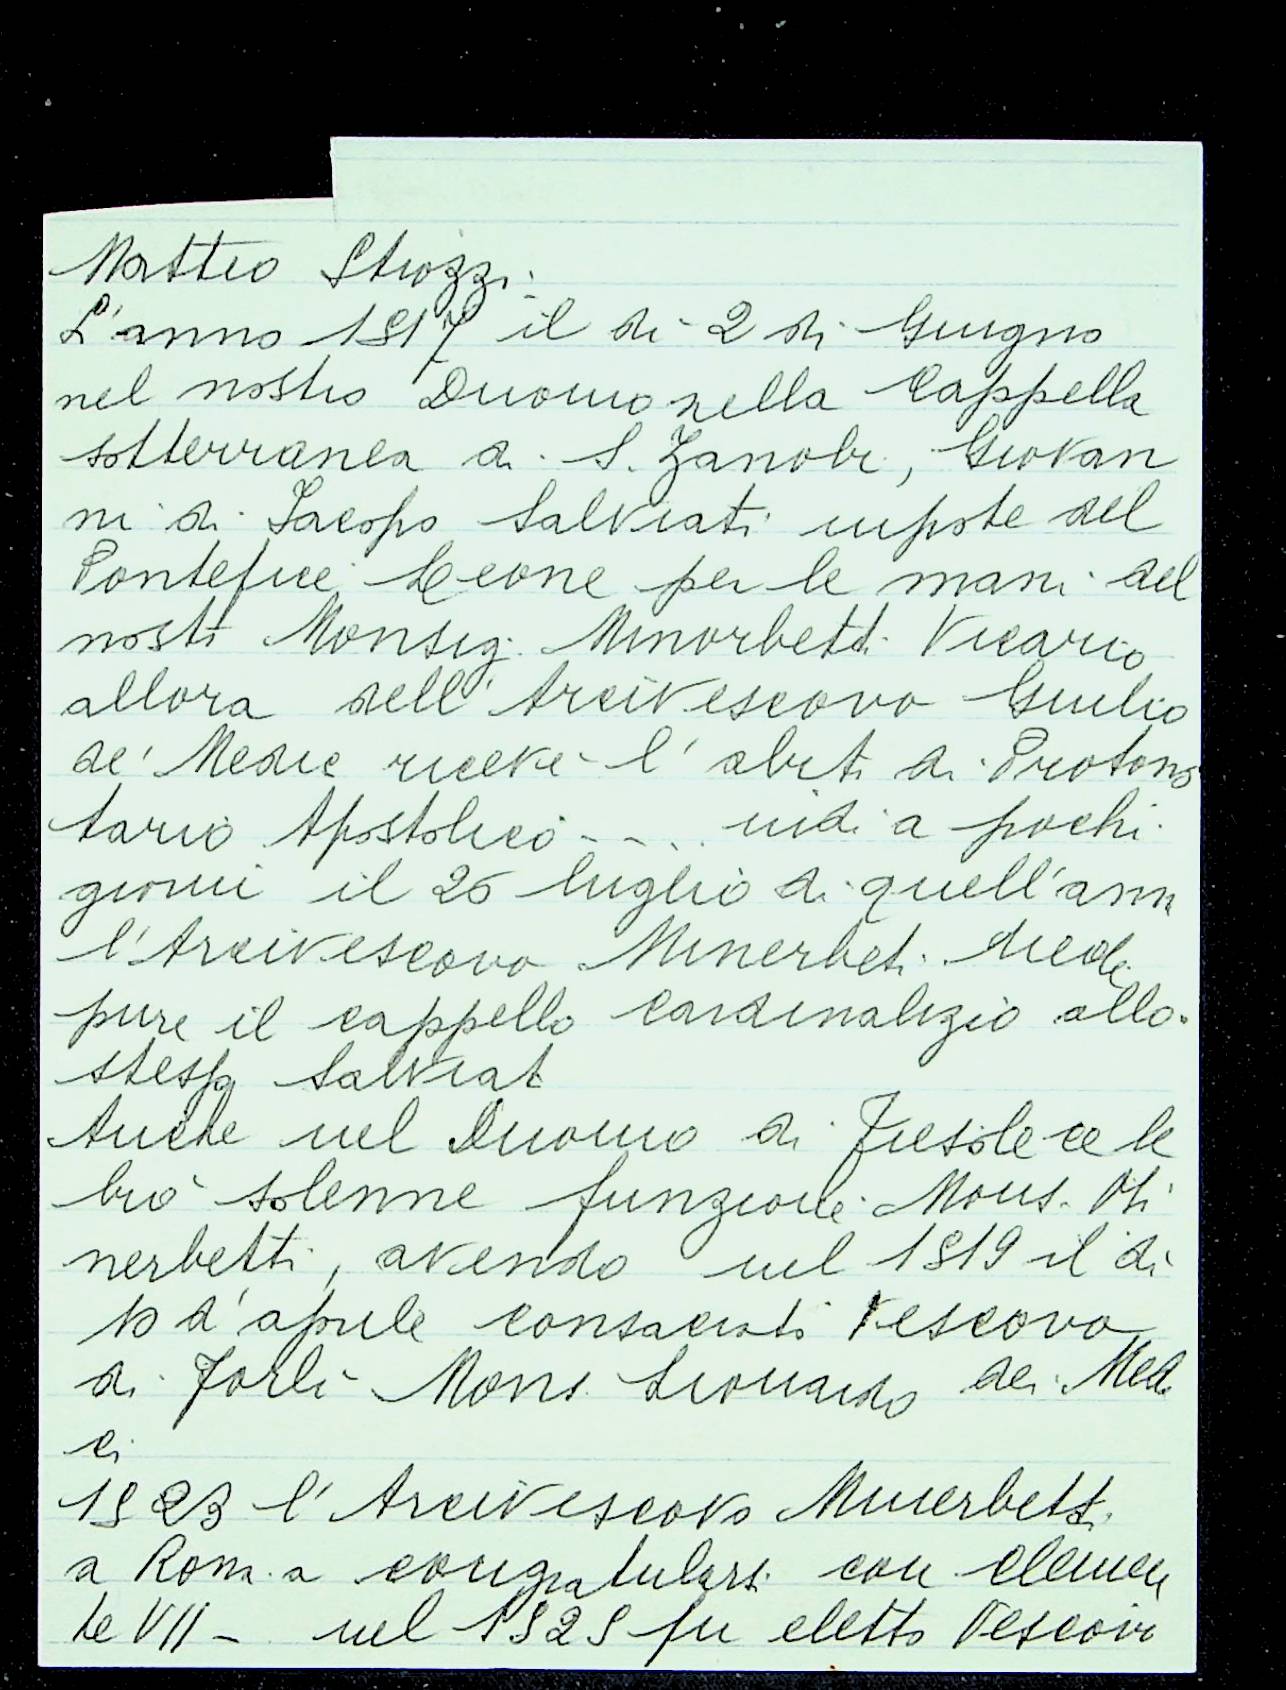 Matteo Strozzi.
L'anno 1517 il di 2 di Giugno
nel nostro Duomo nella Cappella
sotterranea di S. Zanobi, Giovan
ni di Jacopo Salviati nipote del
Pontefice Leone per le mani del
nostr Monsig. Minorbetti Vicario
allora dell'Arcivescovo Giulio
de' Medic riceve l'abito di Protono
tario Apostolico - - .. indi a pochi
giorni il 26 luglio di quell'ann
l'Arcivescovo Minerbeti diede
pure il cappello cardinalizio allo
stesso Salviat
Anche nel Duomo di Fiesole ce le
brò solenne funzione Mons. Mi
nerbetti, avendo nel 1519 il di
10 d'aprile consacrato Vescovo
di Forlì Mons Lionardo dei Medi
ci
1523 l'Arcivescovo Minerbetti
a Roma a congratularsi con Clemen
te VII - nel 1525 fu eletto Vescovo